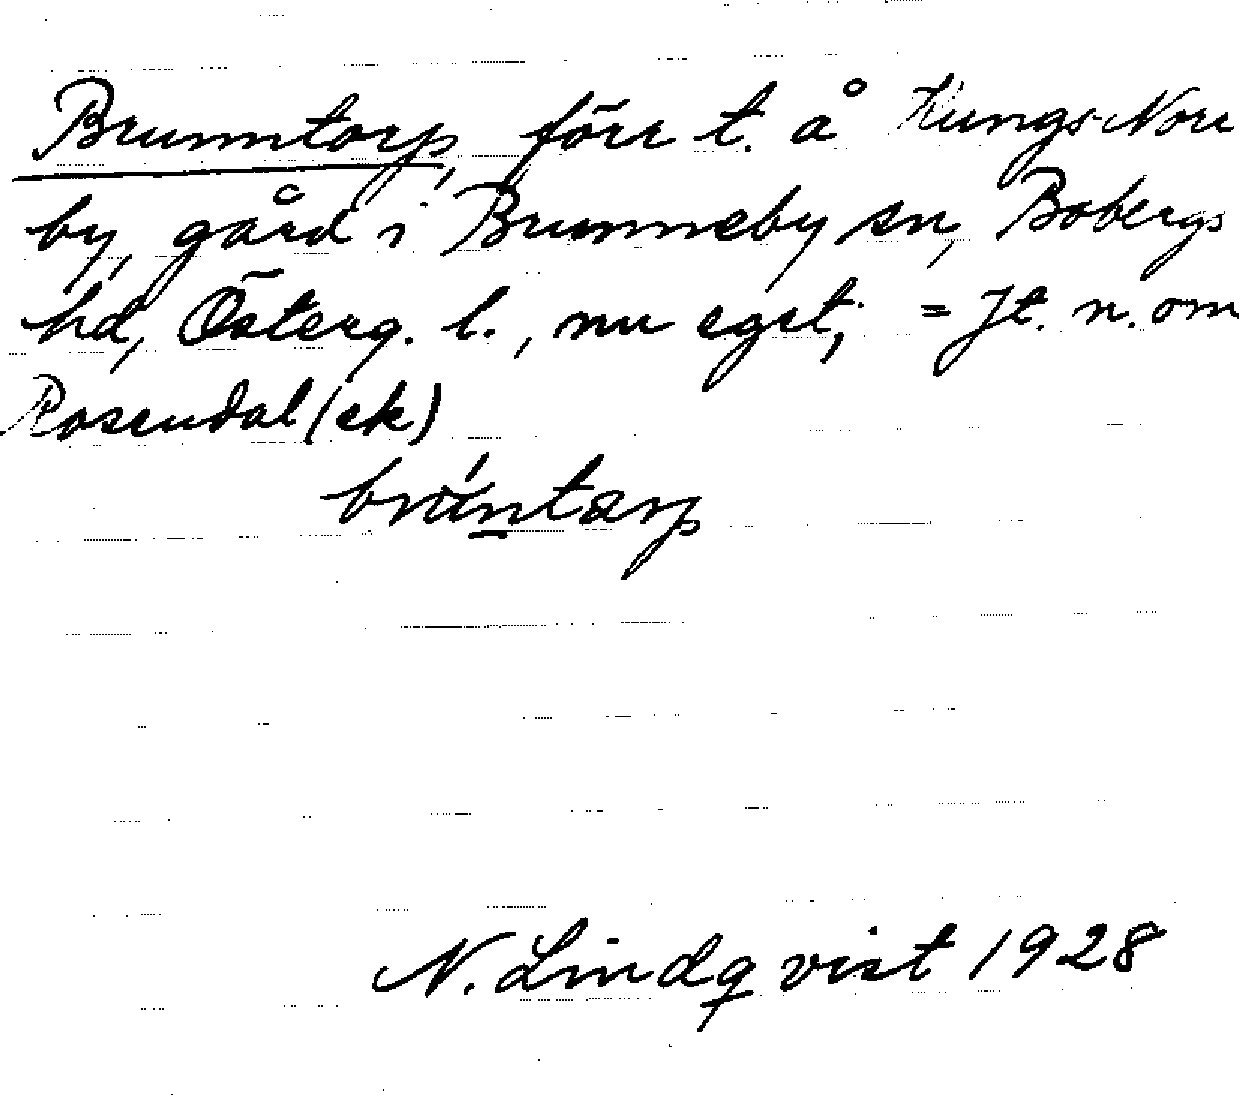 Brunntorp, förr t. å Kungs-Norr
by, gård i Brunneby sn, Bobergs
hd, Österg. l., nu eget; = Jt. n. om
Rosendal (ek)
brúntorp
N. Lindqvist 1928